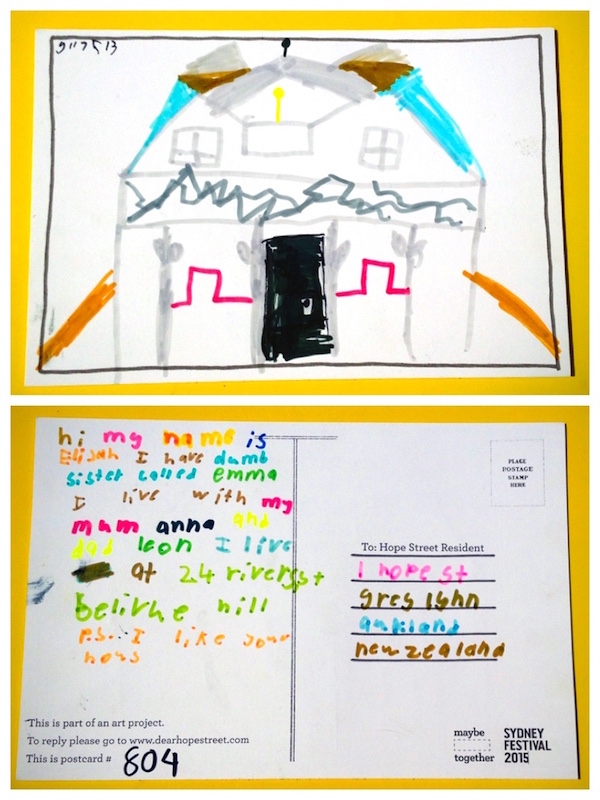 hi my name is
Elijah I have dumb
sister called emma
I live with my
mum anna and
dad leon I live
at 24 riversst
belivhe hill
p.s... I like your
hous
This is part of an art project.
To reply please go to www.dearhopestreet.com
This is postcard # 804
PLACE
POSTAGE
STAMP
HERE
To: Hope Street Resident
1 hope st
greg lyhn
aukland
new zealand
maybe
together
SYDNEY
FESTIVAL
2015